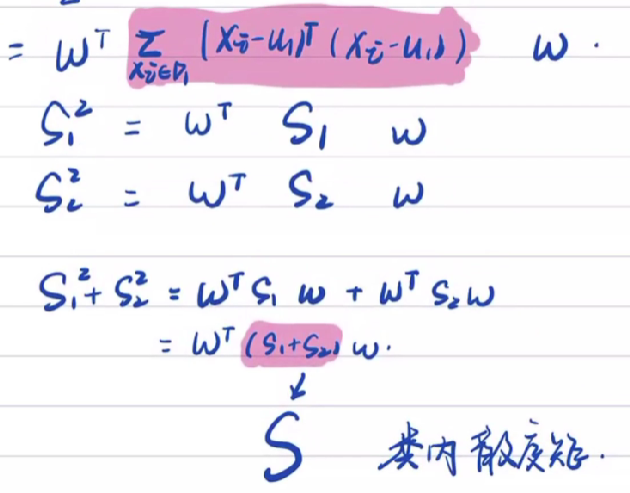 = w^T Σ_{x_i∈D_1} (x_i-u_1)^T (x_i-u_1) w .
S_1^2 = w^T S_1 w
S_2^2 = w^T S_2 w
S_1^2 + S_2^2 = w^T S_1 w + w^T S_2 w
= w^T (S_1+S_2) w .
↓
S 类内散度矩 .